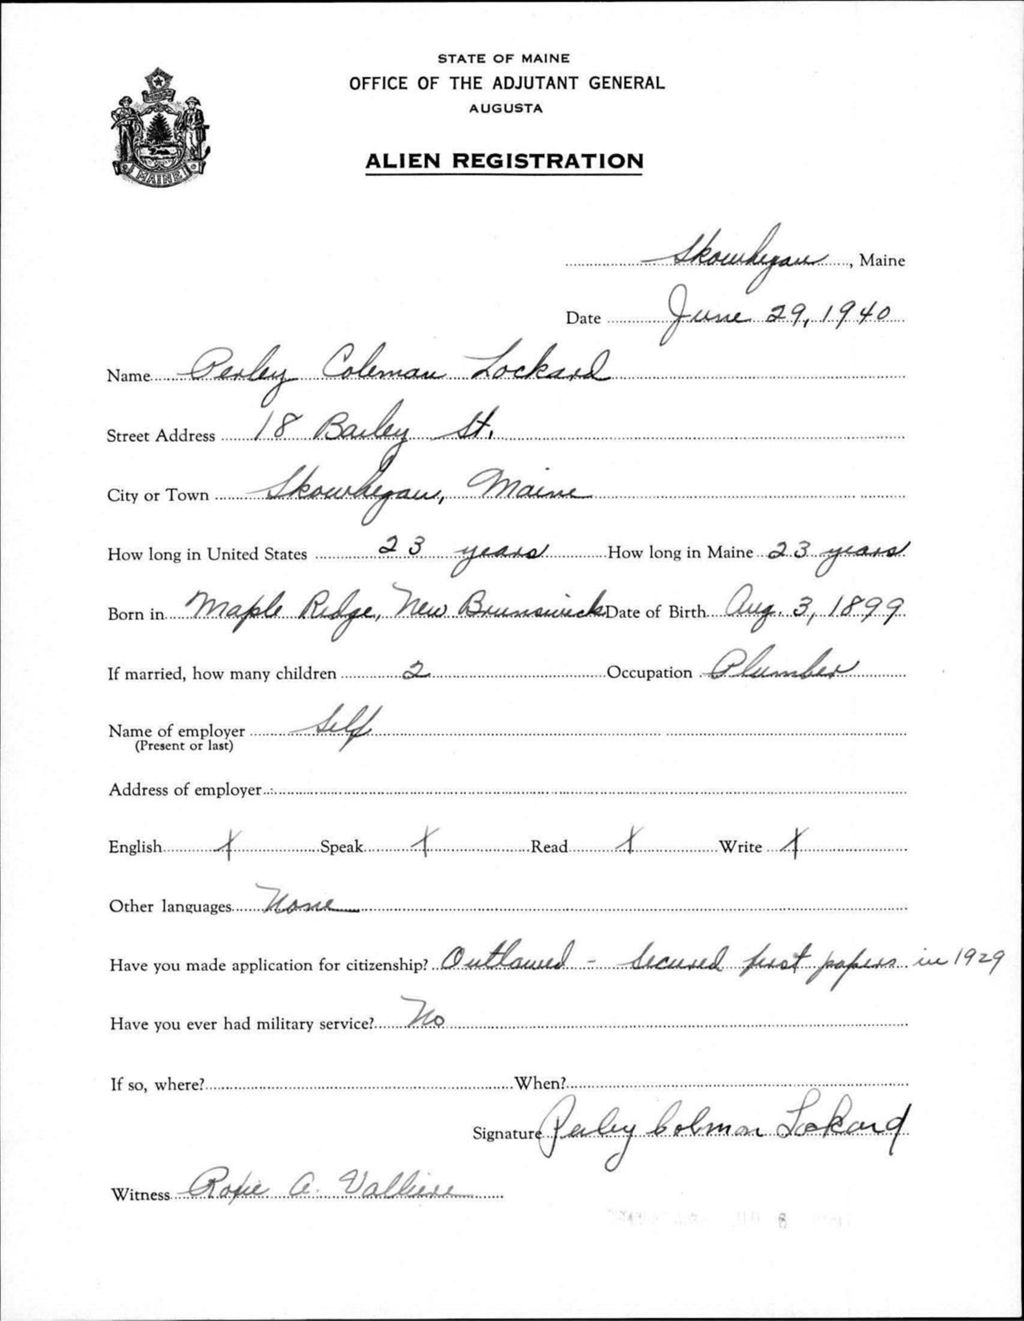 STATE OF MAINE
OFFICE OF THE ADJUTANT GENERAL
AUGUSTA
ALIEN REGISTRATION
MAINE
Skowhegan, Maine
Date June 29, 1940
Name Perley Coleman Lockard
Street Address 18 Bailey St.
City or Town Skowhegan, Maine
How long in United States 23 years How long in Maine 23 years
Born in Maple Ridge, New Brunswick Date of Birth Aug. 3, 1899
If married, how many children 2 Occupation Plumber
Name of employer Self
(Present or last)
Address of employer
English X Speak X Read X Write X
Other languages None
Have you made application for citizenship? Outlawed - secured first papers in 1929
Have you ever had military service? No
If so, where? When?
Signature Perley Colman Lockard
Witness A. Valliere